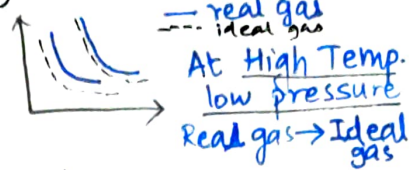 — real gas
---- ideal gas
At High Temp.
low pressure
Real gas → Ideal
gas